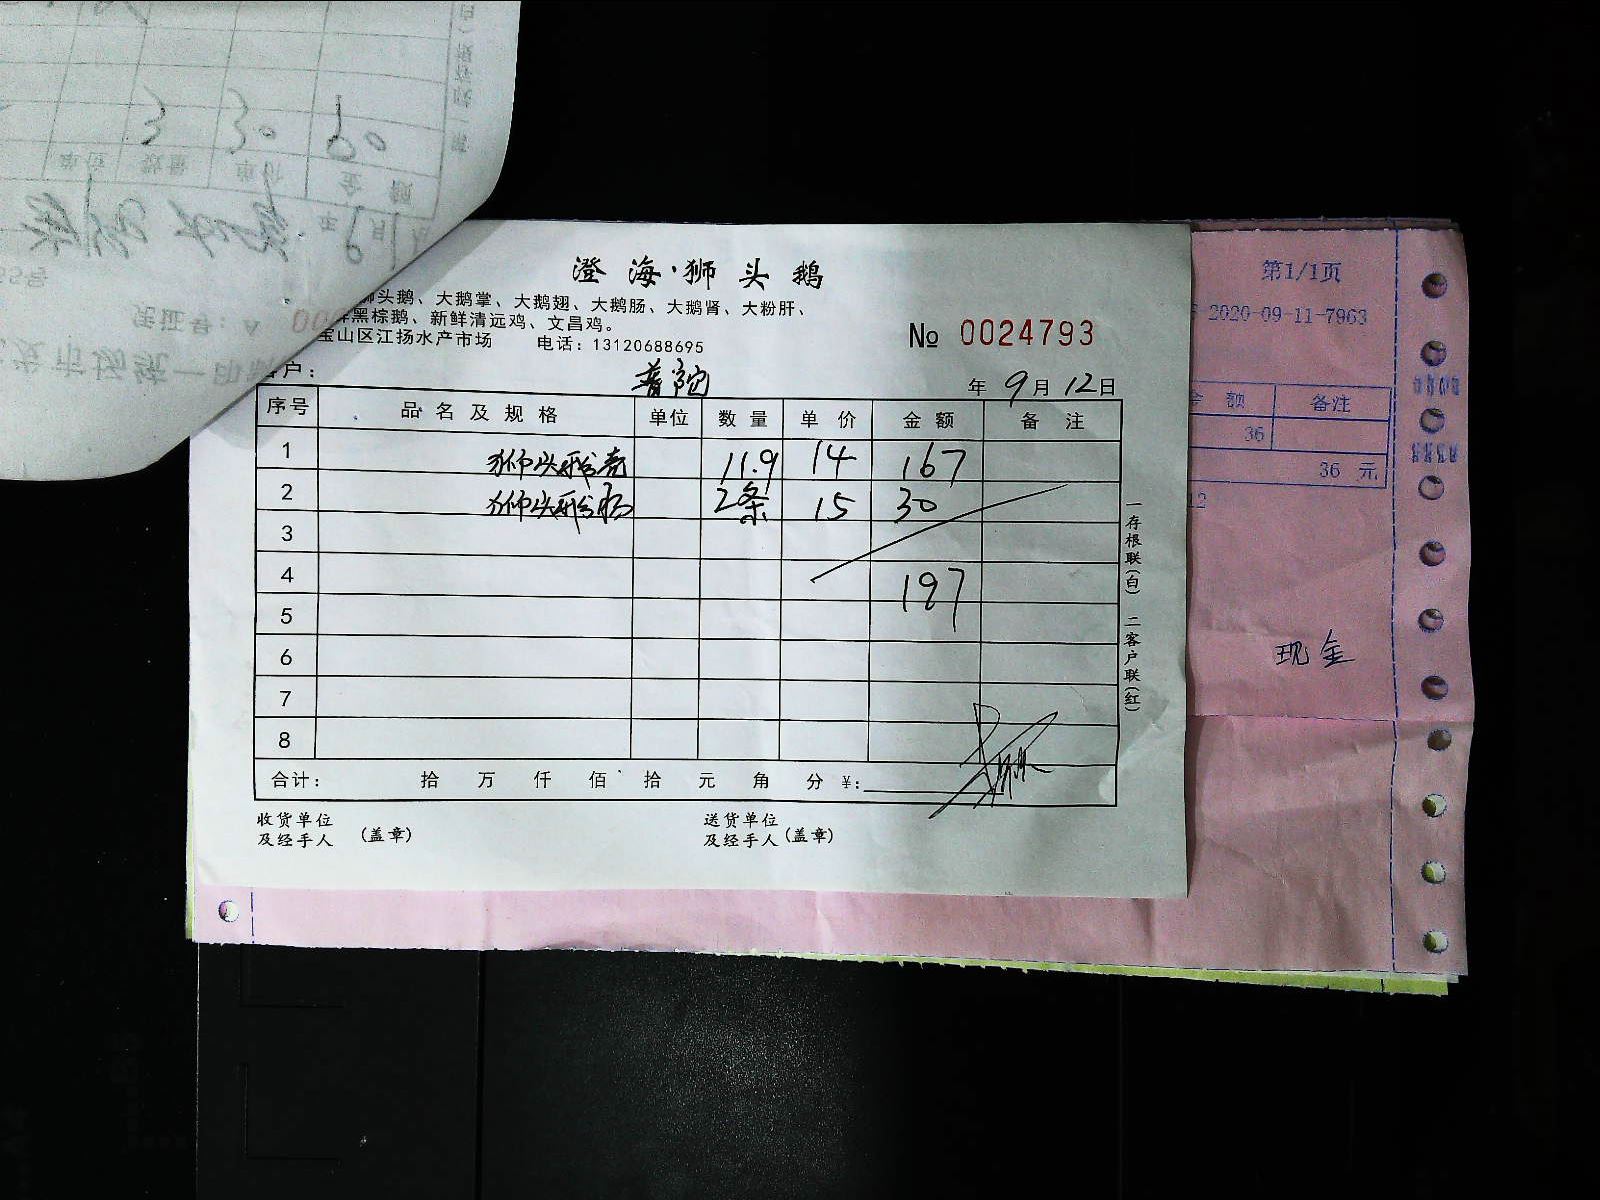 澄海·狮头鹅
狮头鹅、大鹅掌、大鹅翅、大鹅肠、大鹅肾、大粉肝、
黑棕鹅、新鲜清远鸡、文昌鸡。
宝山区江扬水产市场 电话：13120688695
№ 0024793
户： 普陀 年 9 月 12 日
序号 品名及规格 单位 数量 单价 金额 备注
1 狮头鹅壳 11.9 14 167
2 狮头鹅肠 2条 15 30
3
4 197
5
6
7
8
合计： 拾 万 仟 佰 拾 元 角 分 ¥:
收货单位
及经手人 (盖章)
送货单位
及经手人 (盖章)
一存根联(白) 二客户联(红)
第1/1页
2020-09-11-7963
额 备注
36
36 元
12
现金
3 30
单位 数量 单价 金额
年 6月1
凭证号：A 00
发市场统一印